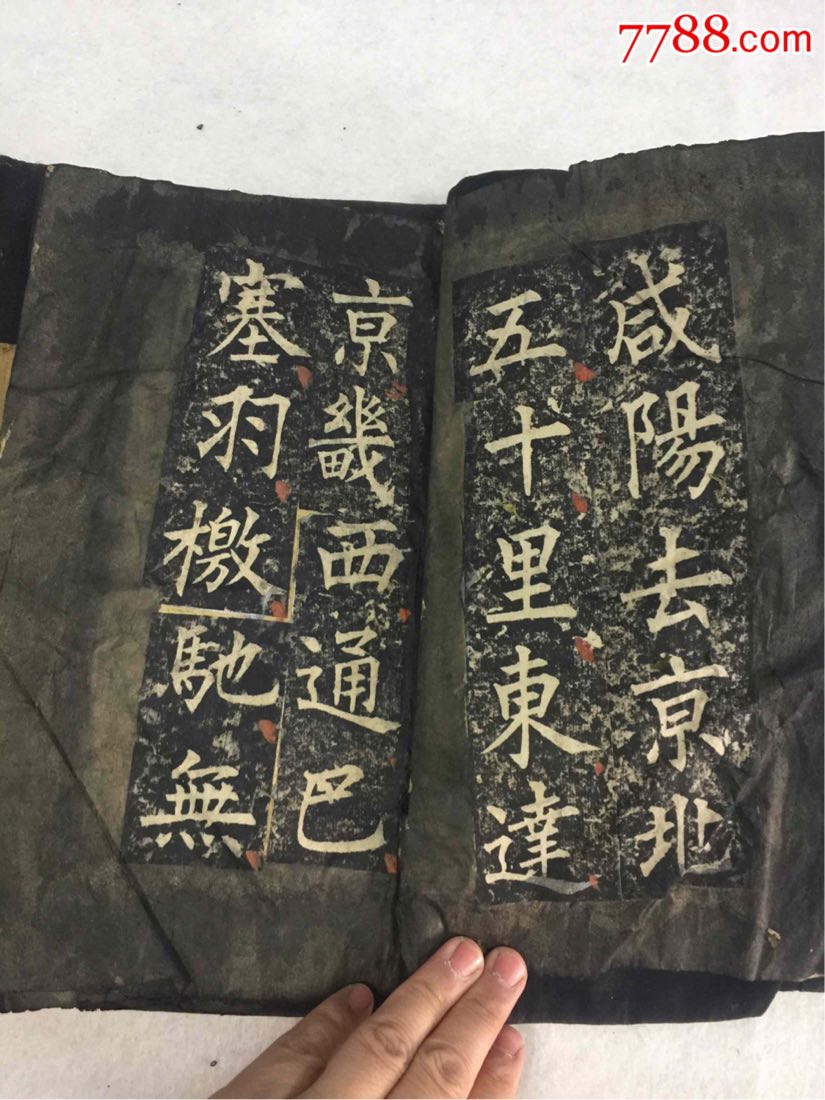 7788.com
咸陽去京北
五十里東達
京畿西通巴
塞羽檄馳無